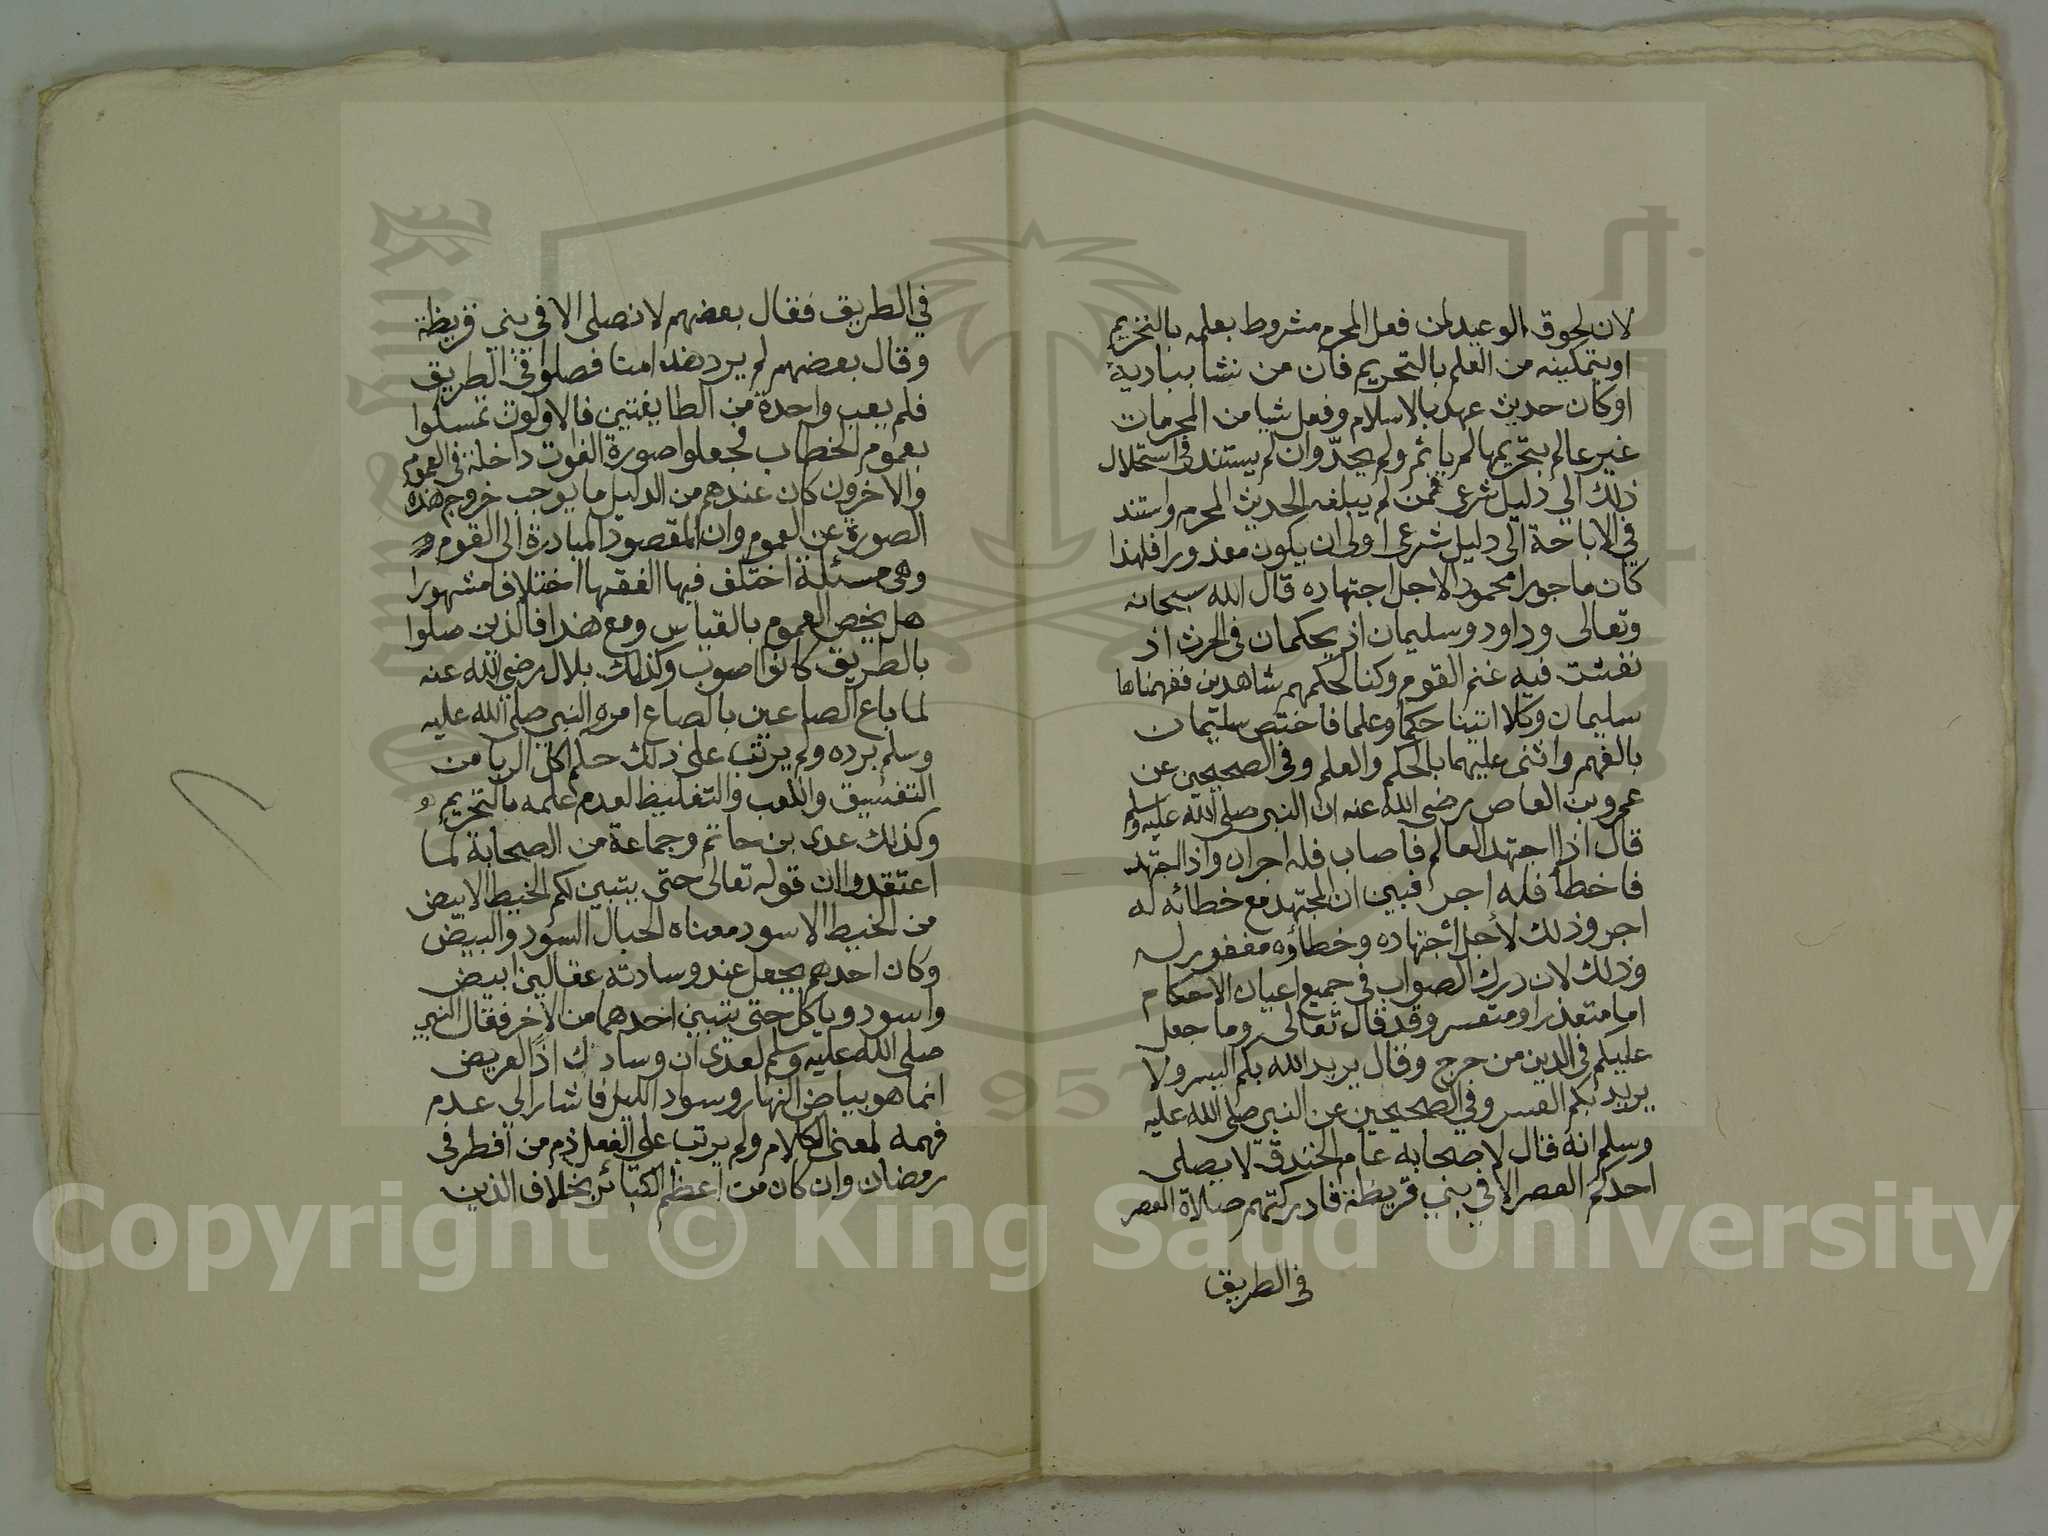 لان لحوق الوعيد لمن فعل المحرم مشروط بعلمه بالتحريم
او بتمكينه من العلم بالتحريم فان من نشا ببادية
او كان حديث عهد بالاسلام وفعل شيا من المحرمات
غير عالم بتحريمها لم ياثم ولم يحدّ وان لم يستند في استحلال
ذلك الى دليل شرعي فمن لم يبلغه الحديث المحرم واستند
في الاباحة الى دليل شرعي اولى ان يكون معذورا فلهذا
كان ماجورا محمودا لاجل اجتهاده قال الله سبحانه
وتعالى وداود وسليمان اذ يحكمان في الحرث اذ
نفشت فيه غنم القوم وكنا لحكمهم شاهدين ففهمناها
سليمان وكلا اتينا حكما وعلما فاختص سليمان
بالفهم واثنى عليهما بالحكم والعلم وفي الصحيحين عن
عمرو بن العاص رضي الله عنه ان النبي صلى الله عليه وسلم
قال اذا اجتهد العالم فاصاب فله اجران واذا اجتهد
فاخطأ فله اجر فبين ان المجتهد مع خطائه له
اجر وذلك لأجل اجتهاده وخطاؤه مغفور له
وذلك لان درك الصواب في جميع اعيان الاحكام
اما متعذر او متعسر وقد قال تعالى وما جعل
عليكم في الدين من حرج وقال يريد الله بكم اليسر ولا
يريد بكم العسر وفي الصحيحين عن النبي صلى الله عليه
وسلم انه قال لاصحابه عام الخندق لا يصلى
احدكم العصر الا في بني قريظة فادركتهم صلاة العصر
في الطريق
في الطريق فقال بعضهم لا نصلى الا في بني قريظة
وقال بعضهم لم يرد هذا منا فصلوا في الطريق
فلم يعب واحدة من الطايفتين فالاولون تمسلوا
بعموم الخطاب فجعلوا صورة الفوات داخلة في العموم
والاخرون كان عندهم من الدليل ما يوجب خروج هذه
الصورة عن العموم وان المقصود المبادرة الى القوم
وهي مسئلة اختلف فيها الفقها اختلافا مشهورا
هل يخص العموم بالقياس ومع هذا فالذين صلوا
بالطريق كانوا اصوب وكذلك بلال رضي الله عنه
لما باع الصاعين بالصاع امره النبي صلى الله عليه
وسلم برده ولم يرتب على ذلك حكم اكل الربا من
التفسيق واللعب والتغليظ لعدم علمه بالتحريم
وكذلك عدى بن حاتم وجماعة من الصحابة لما
اعتقدوا ان قوله تعالى حتى يتبين لكم الخيط الابيض
من الخيط الاسود معناه الحبال السود والبيض
وكان احدهم يجعل عند وسادته عقالين ابيض
واسود وياكل حتى يتبين احدهما من الاخر فقال النبي
صلى الله عليه وسلم لعدى ان وسادك اذًا لعريض
انما هو بياض النهار وسواد الليل فاشار الى عدم
فهمه لمعنى الكلام ولم يرتب على الفعل ذم من افطر في
رمضان وان كان من اعظم الكبائر بخلاف الذين
Copyright © King Saud University
1957